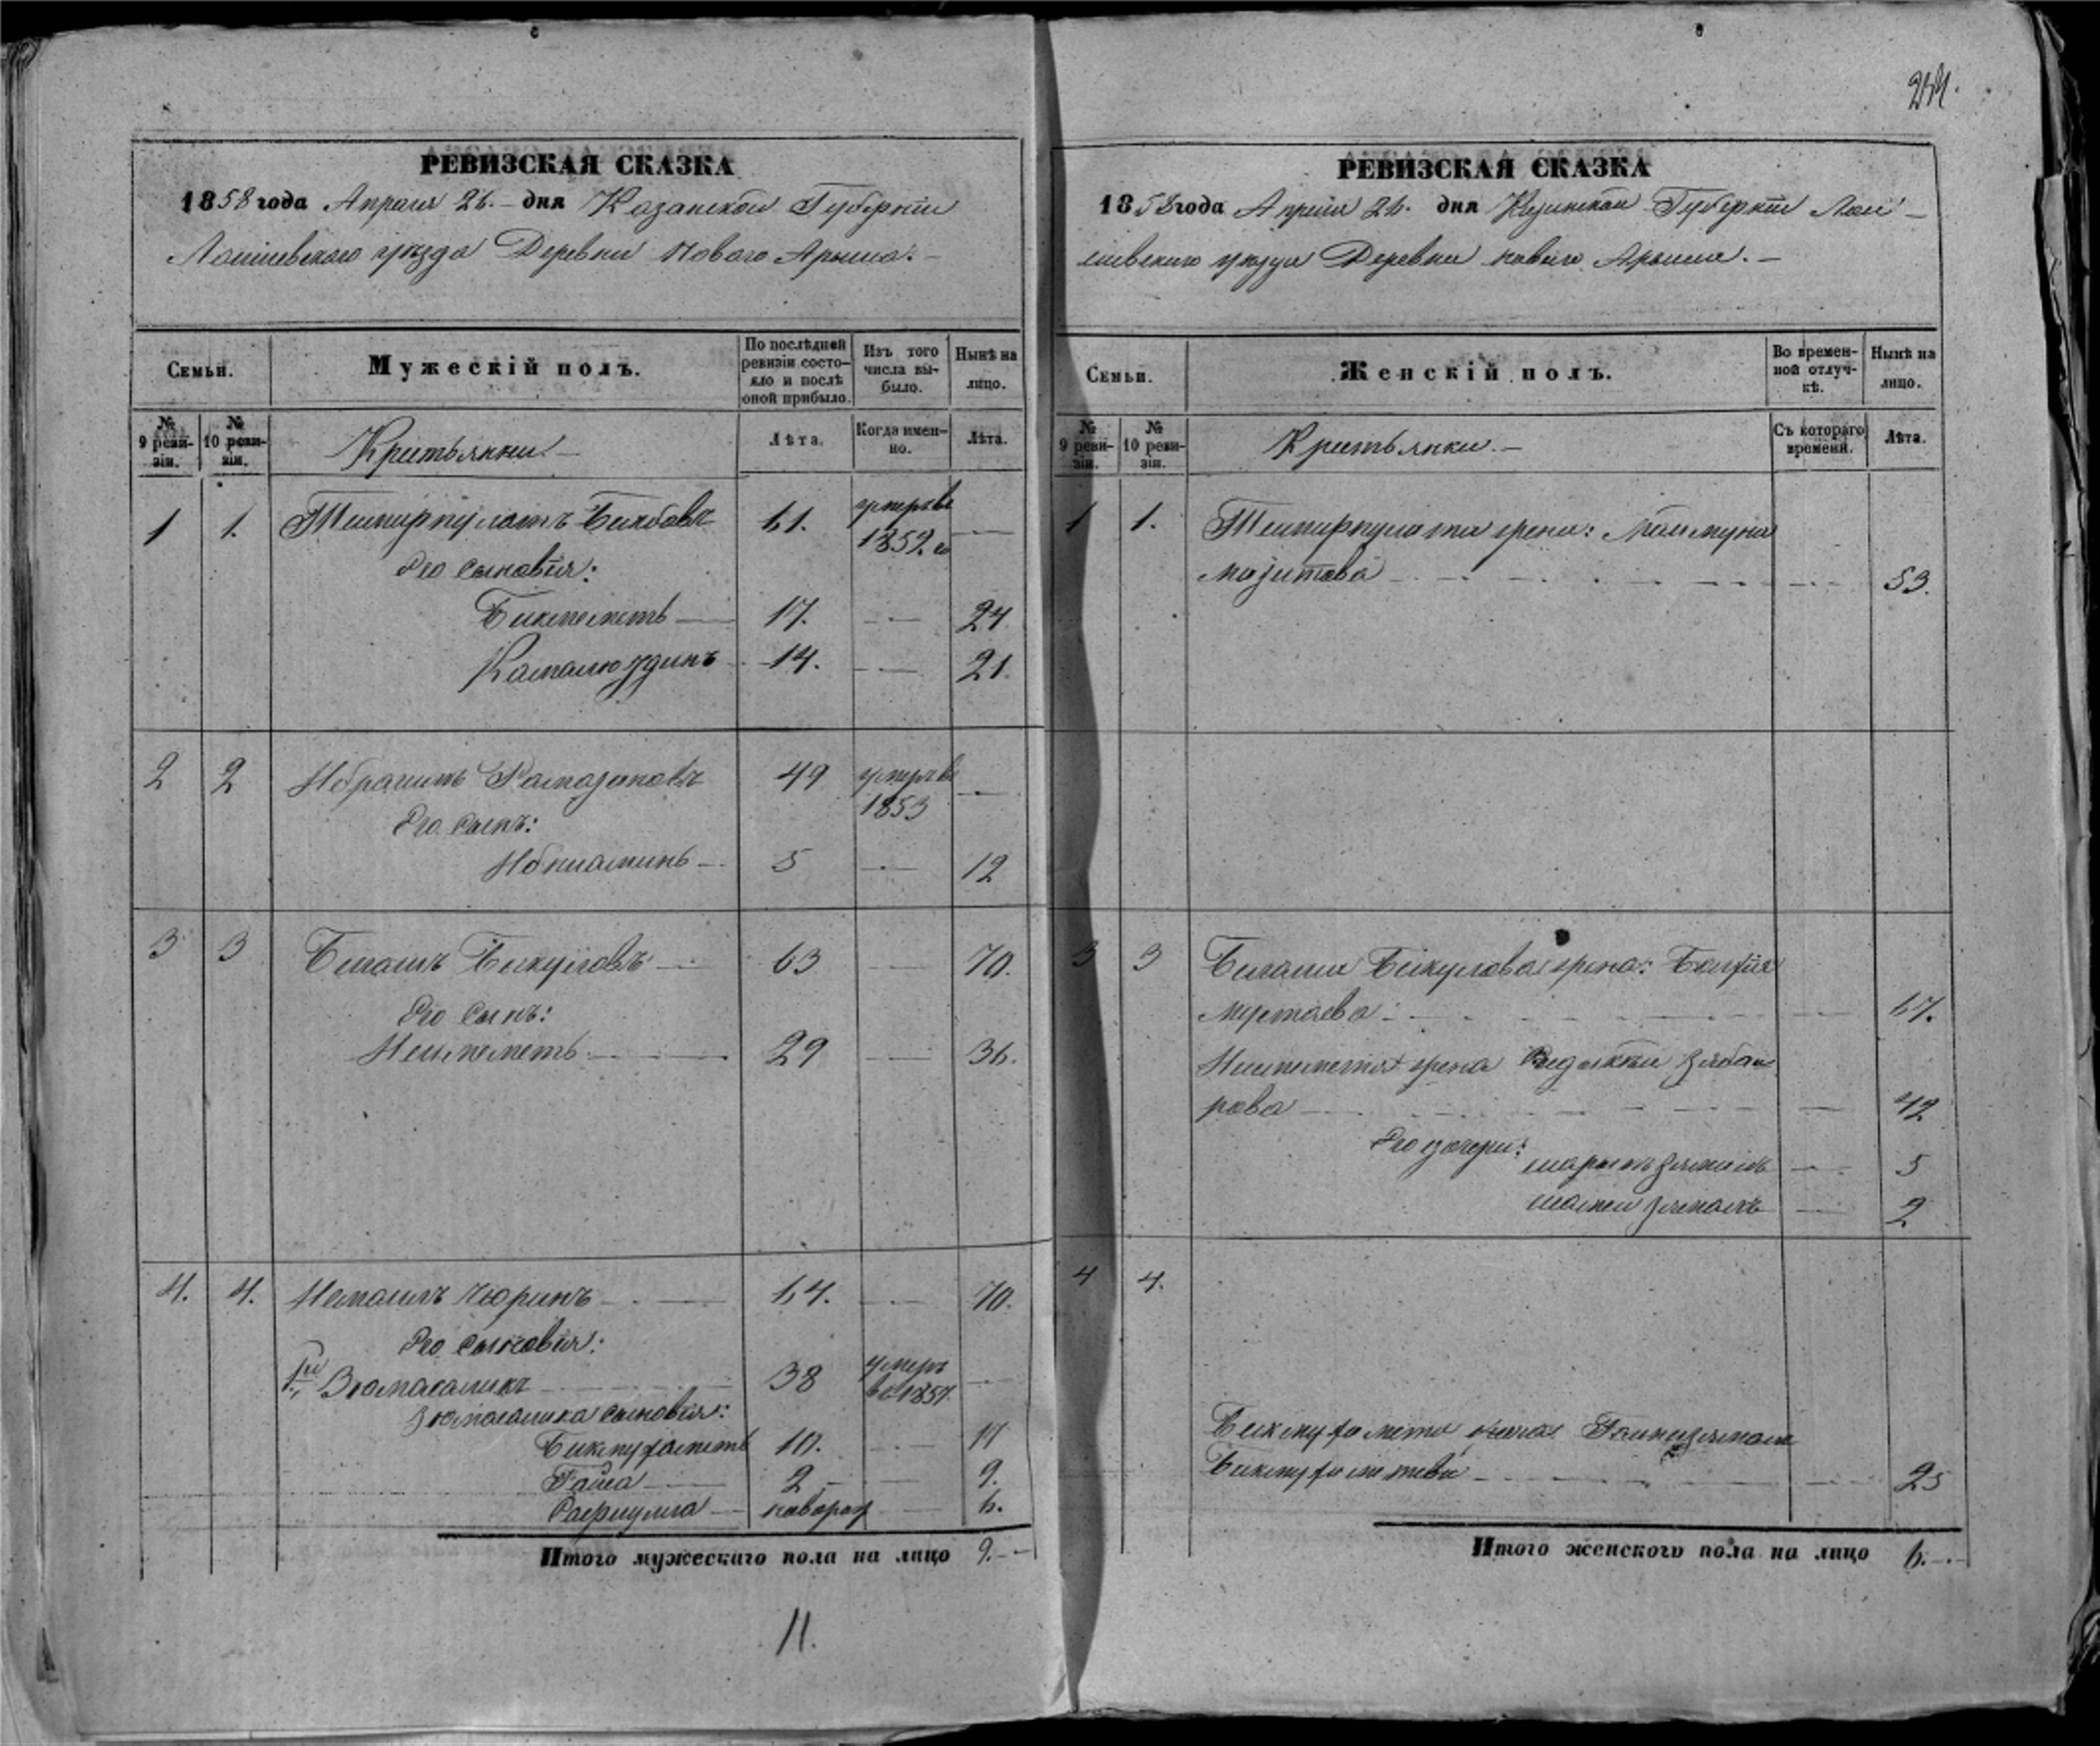 244.
РЕВИЗСКАЯ СКАЗКА
1858 года Апреля 26.– дня Казанской Губерніи
Лаишевскаго уѣзда Деревни Нового Арыша.–
Семьи.
Мужескій полъ.
По послѣдней ревизіи состояло и послѣ оной прибыло.
Изъ того числа выбыло.
Нынѣ на лицо.
№ 9 ревизіи.
№ 10 ревизіи.
Крестьяне.–
Лѣта.
Когда именно.
Лѣта.
1 1. Темирпулатъ Бикбовъ 61. умеръ въ 1852 г —
Его сыновья:
Бикмеметь — 17. — 24
Камалютдинъ 14. — 21.
2 2 Ибрагимъ Рамазановъ 49 умеръ въ 1853 —
Его сынъ:
Ибниаминь — 5 — 12
3 3 Бигашъ Бикуловъ — 63 — 70.
Его сынъ:
Ишмеметь — 29 — 36.
4. 4. Исмаилъ — 64. — 70.
Его сыновья:
1й 38 умеръ въ 1857. —
сыновья:
Бикмухаметь 10. — 17
2 — 9.
новорож — 6.
Итого мужескаго пола на лицо 9.–
11.
РЕВИЗСКАЯ СКАЗКА
1858 года Апреля 26. дня Казанской Губерніи Лаи–
шевскаго уѣзда Деревни новаго Арыша.–
Семьи.
Женскій полъ.
Во временной отлучкѣ.
Нынѣ на лицо.
№ 9 ревизіи.
№ 10 ревизіи.
Крестьянки.–
Съ котораго времени.
Лѣта.
1 1. Темирпулата жена: Маймуна
Мазитова — 53.
3 3 Бигаша Бикулова жена:
— 67.
Ишмемета жена
рова — 42
Его дочери:
— 5
— 2
4 4.
Бикмухамета жена
Бикмухаметева — 25
Итого женского пола на лицо 6.–